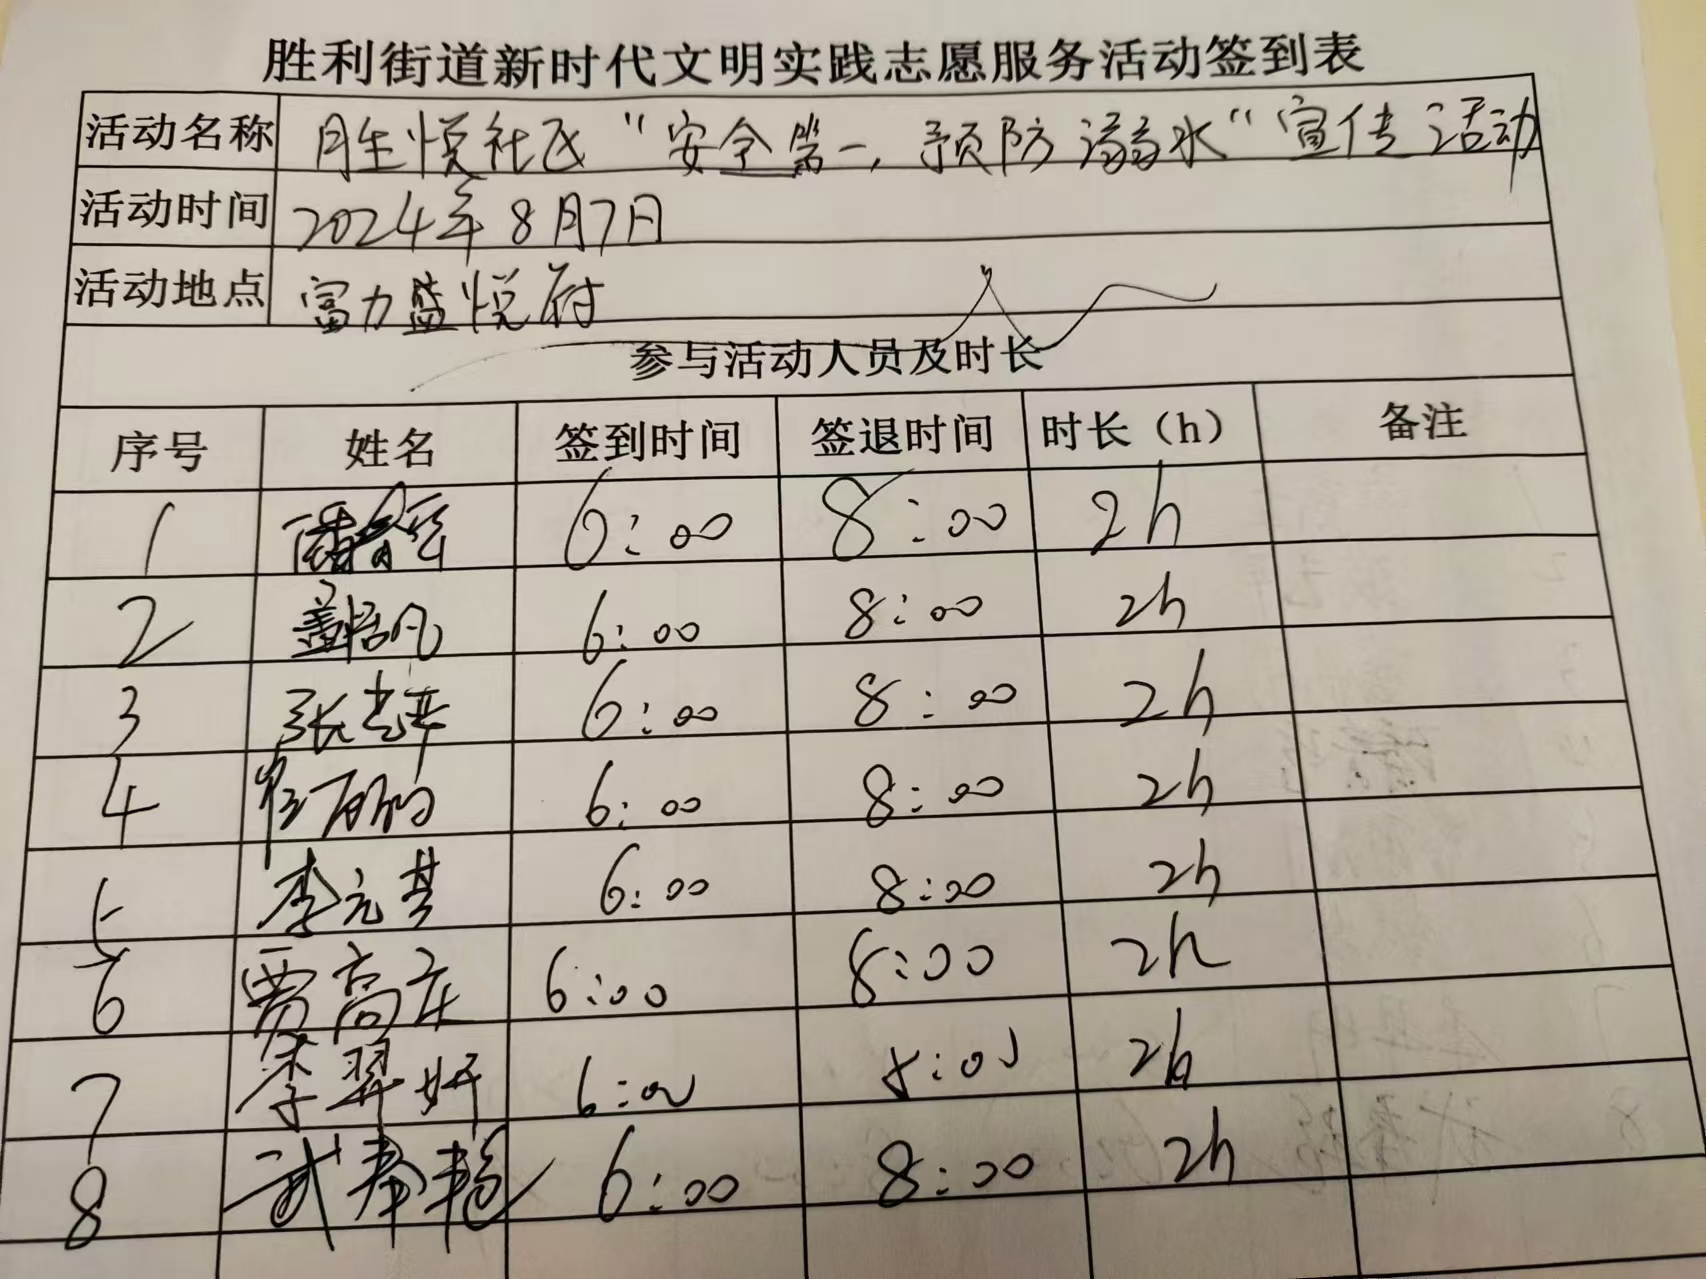 胜利街道新时代文明实践志愿服务活动签到表
活动名称 胜悦社区“安全第一，预防溺水”宣传活动
活动时间 2024年8月7日
活动地点 富力盛悦府
参与活动人员及时长
序号 姓名 签到时间 签退时间 时长（h） 备注
1 6:00 8:00 2h
2 6:00 8:00 2h
3 张 6:00 8:00 2h
4 6:00 8:00 2h
5 李元 6:00 8:00 2h
6 贾高 6:00 8:00 2h
7 李羿妍 6:00 8:00 2h
8 武 6:00 8:00 2h